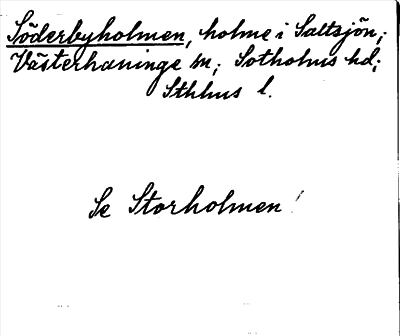 Söderbyholmen, holme i Saltsjön;
Västerhaninge sn; Sotholms hd;
Sthlms l.
Se Storholmen!